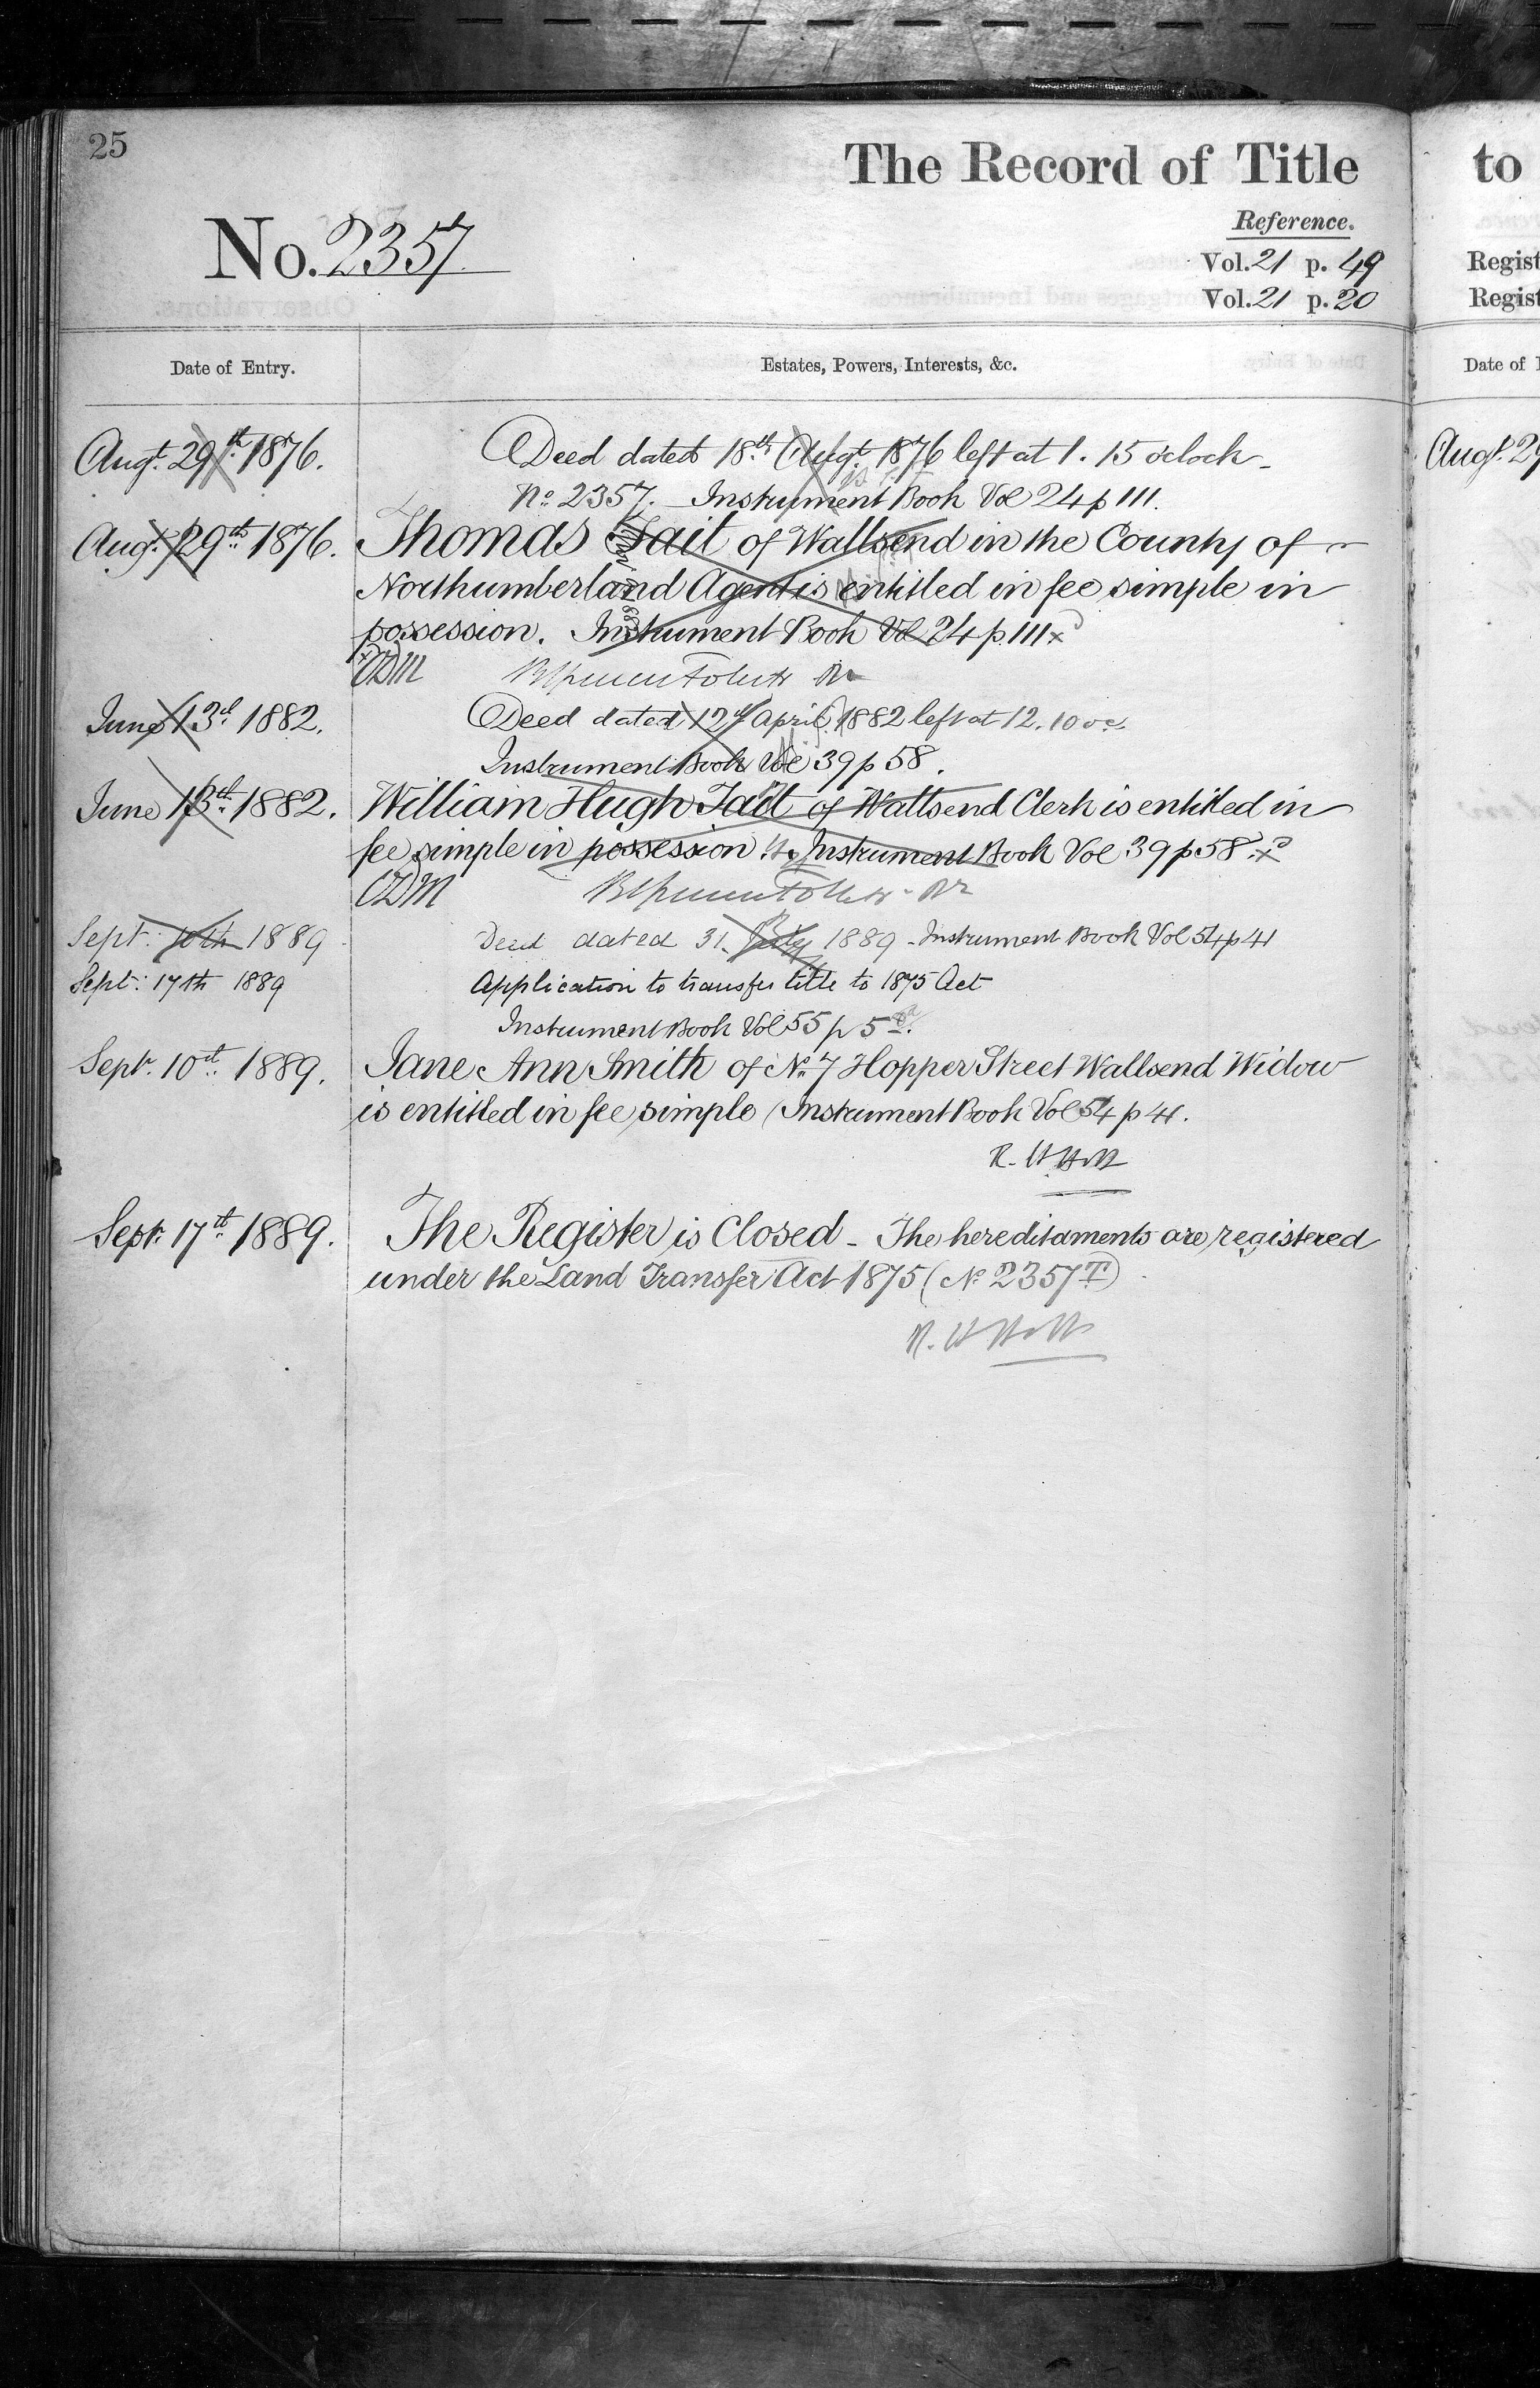 25
The Record of Title
to
Reference.
No. 2357
Vol. 21 p. 49
Regist
Vol. 21 p. 20
Regist
Date of Entry.
Estates, Powers, Interests, &c.
Date of
Augt. 29th. 1876.
Deed dated 18th Augt. 1876 left at 1. 15 o'clock
Augt. 29
No. 2357. Instrument Book Vol 24 p 111.
Augt. 29th. 1876.
Thomas Tait of Wallsend in the County of
Northumberland Agent is entitled in fee simple in
possession. Instrument Book Vol 24 p. 111
June 13th 1882.
Deed dated 12th April 1882 left at 12. 10
Instrument Book Vol 39 p 58.
June 13th. 1882.
William Hugh Tait of Wallsend Clerk is entitled in
fee simple in possession. Instrument Book Vol 39 p 58.
Sept: 10th 1889
Deed dated 31 July 1889 - Instrument Book Vol 54 p 41
Sept: 17th 1889
Application to transfer title to 1875 Act
Instrument Book Vol 55 p 5
Sept. 10th. 1889.
Jane Ann Smith of No. 7 Hopper Street Wallsend Widow
is entitled in fee simple (Instrument Book Vol 54 p 41.
R. H. Holt
Sept. 17th. 1889.
The Register is Closed - The hereditaments are registered
under the Land Transfer Act 1875 (No 2357 T)
R. H. Holt